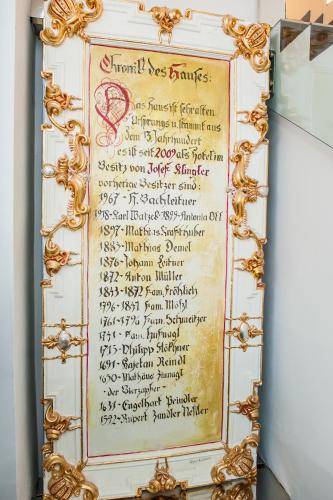 Chronik des Hauses:
Das Haus ist sehr alten
Ursprungs u. stammt aus
dem 13 Jahrhundert
es ist seit 2009 als Hotel im
Besitz von Josef Klingler
vorherige Besitzer sind:
1967 - H. Bachleitner
1918 - Karl Watzek - 1899 - Antonia Ott
1897 - Mathias Krafthuber
1883 - Mathias Demel
1876 - Johann Leitner
1872 - Anton Müller
1833 - 1872 Fam. Fröhlich
1796 - 1831 Fam. Mohl
1761 - 1796 Fam. Schmeitzer
1741 - Fam. Hufnagl
1715 - Philipp Röckhner
1691 - Kajetan Reindl
1670 - Mathäus
- der Bierzapfer -
1631 - Engelhart Peindler
1592 - Rupert Zandler